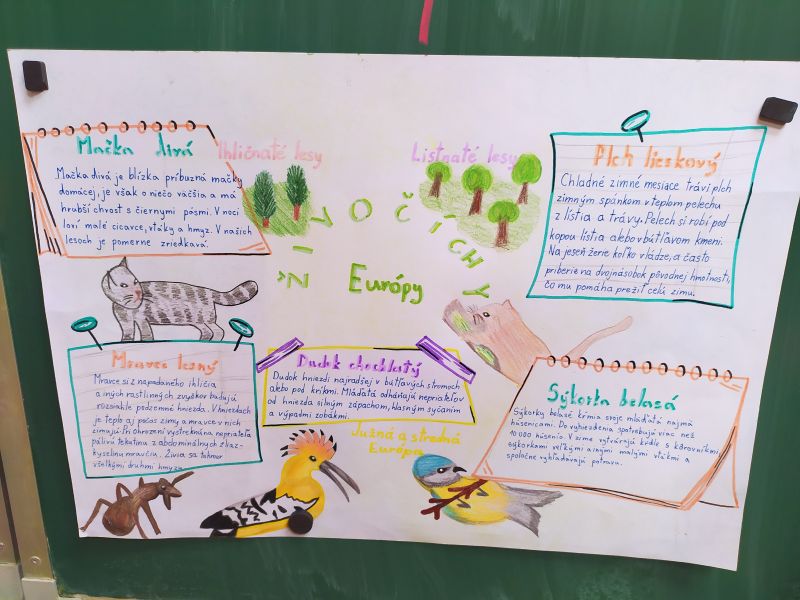 Mačka divá
Mačka divá je blízka príbuzná mačky
domácej, je však o niečo väčšia a má
hrubší chvost s čiernymi pásmi. V noci
loví malé cicavce, vtáky a hmyz. V našich
lesoch je pomerne zriedkavá.
Ihličnaté lesy
Listnaté lesy
ŽIVOČÍCHY
Európy
Plch lieskový
Chladné zimné mesiace trávi plch
zimným spánkom v teplom pelechu
z lístia a trávy. Pelech si robí pod
kopou lístia alebo v bútľavom kmeni.
Na jeseň žerie koľko vládze, a často
priberie na dvojnásobok pôvodnej hmotnosti,
čo mu pomáha prežiť celú zimu.
Mravec lesný
Mravce si z napadaného ihličia
a iných rastlinných zvyškov budujú
rozsiahle podzemné hniezda. V hniezdach
je teplo aj počas zimy a mravce v nich
zimujú. Pri ohrození vystreknú na nepriateľa
pálivú tekutinu z abdominálnych žliaz-
kyselinu mravčiu. Živia sa takmer
všetkými druhmi hmyzu.
Dudok chochlatý
Dudok hniezdi najradšej v bútľavých stromoch
alebo pod kríkmi. Mláďatá odháňajú nepriateľov
od hniezda silným zápachom, hlasným syčaním
a výpadmi zobákmi.
Južná a stredná
Európa
Sýkorka belasá
Sýkorky belasé kŕmia svoje mláďatá najmä
húsenicami. Do vyhniezdenia spotrebujú viac než
10 000 húseníc. V zime vytvárajú kŕdle s kôrovníkmi,
sýkorkami veľkými a inými malými vtákmi a
spoločne vyhľadávajú potravu.